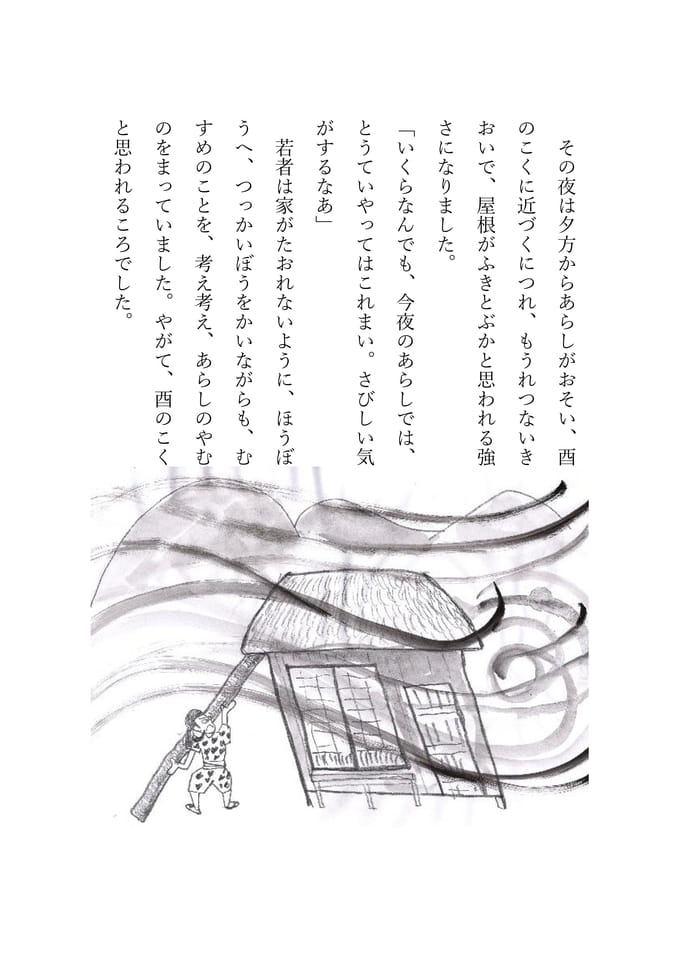 その夜は夕方からあらしがおそい、酉
のこくに近づくにつれ、もうれつないき
おいで、屋根がふきとぶかと思われる強
さになりました。
「いくらなんでも、今夜のあらしでは、
とうていやってはこれまい。さびしい気
がするなあ」
　若者は家がたおれないように、ほうぼ
うへ、つっかいぼうをかいながらも、む
すめのことを、考え考え、あらしのやむ
のをまっていました。やがて、酉のこく
と思われるころでした。